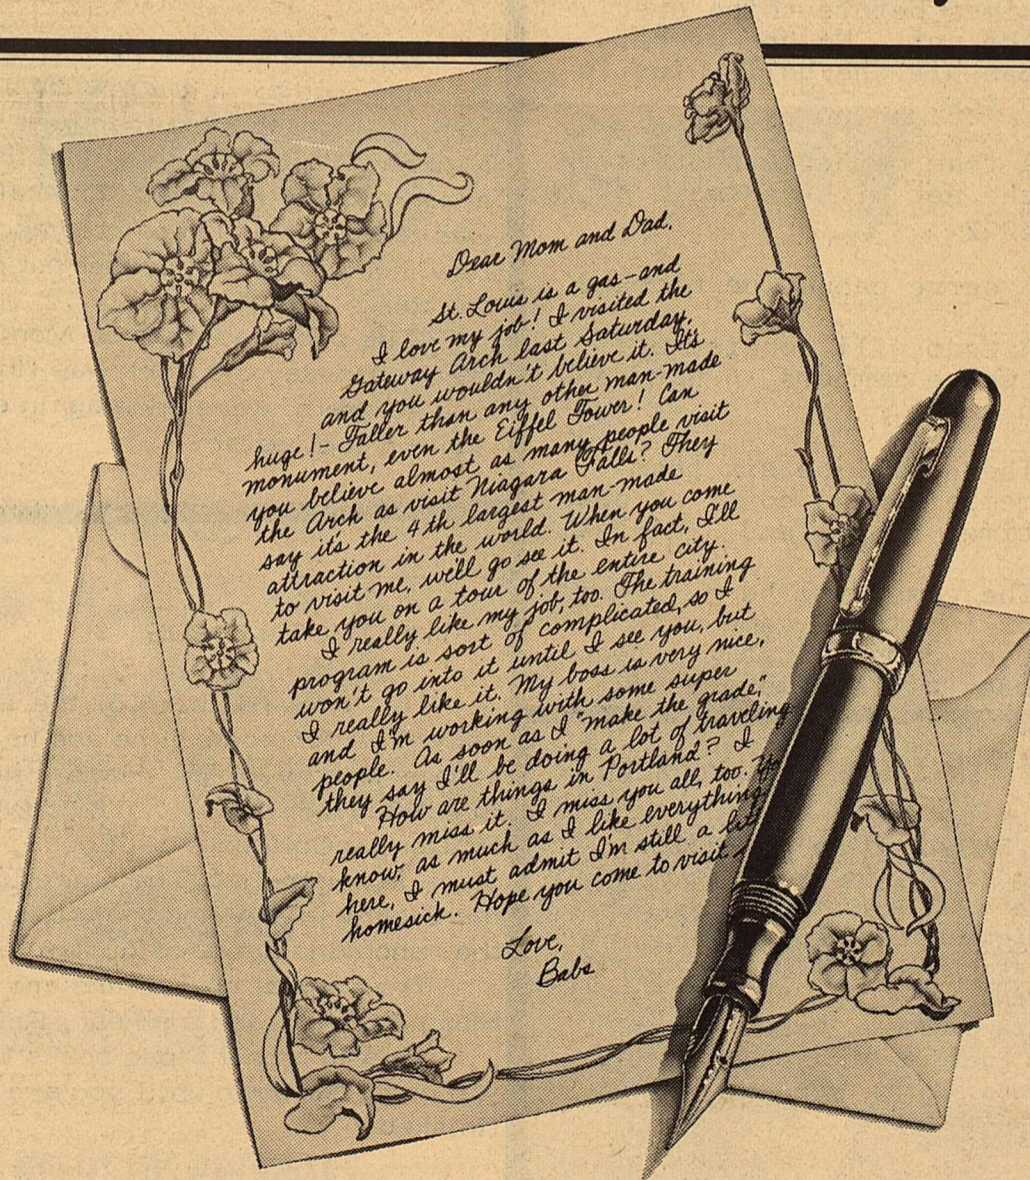 Dear Mom and Dad,
St. Louis is a gas - and
I love my job! I visited the
Gateway Arch last Saturday,
and you wouldn't believe it. It's
huge! - Taller than any other man-made
monument, even the Eiffel Tower! Can
you believe almost as many people visit
the Arch as visit Niagara Falls? They
say it's the 4th largest man-made
attraction in the world. When you come
to visit me, we'll go see it. In fact, I'll
take you on a tour of the entire city.
I really like my job, too. The training
program is sort of complicated, so I
won't go into it until I see you, but
I really like it. My boss is very nice,
and I'm working with some super
people. As soon as I "make the grade,"
they say I'll be doing a lot of traveling
How are things in Portland? I
really miss it. I miss you all, too.
know, as much as I like everything
here, I must admit I'm still a
homesick. Hope you come to visit
Love,
Babs